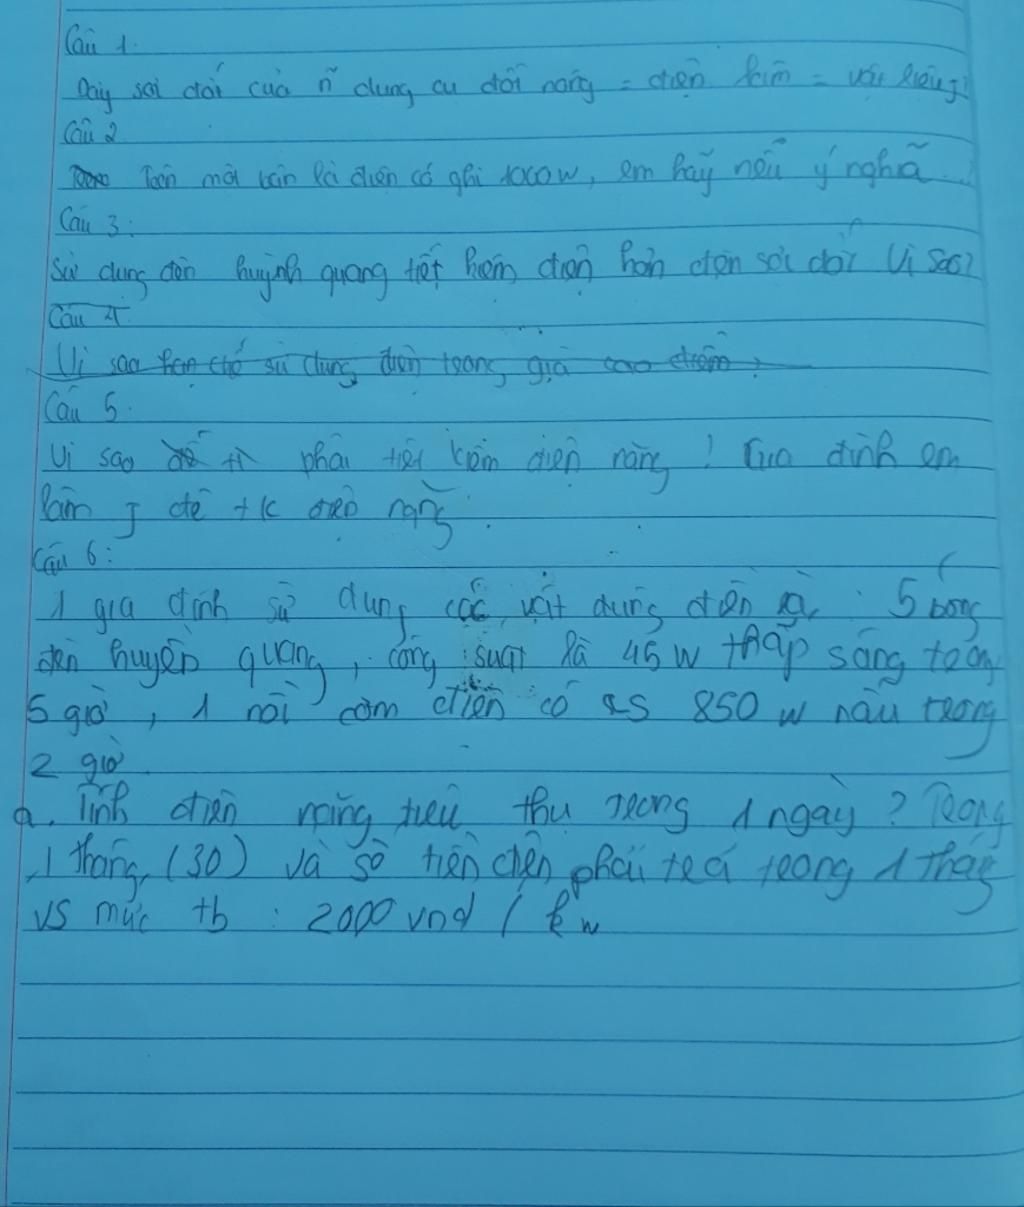 Câu 1.
Dây sợi đốt của n~ dụng cụ đốt nóng = điện làm = vật liệu j?
Câu 2
Trên một bàn là điện có ghi 1000w, em hãy nêu ý nghĩa
Câu 3:
Sử dụng đèn huỳnh quang tiết kiệm điện hơn đèn sợi đốt Vì sao?
Câu 4.
Vì sao hạn chế sử dụng điện trong giờ cao điểm?
Câu 5.
Vì sao phải tiết kiệm điện năng? Gia đình em
làm j để tk điện năng.
Câu 6:
1 gia đình sử dụng các vật dụng điện là: 5 bóng
đèn huyền quang, công suất là 45w thắp sáng trong
5 giờ, 1 nồi cơm điện có cs 850 w nấu trong
2 giờ
a. Tính điện năng tiêu thụ trong 1 ngày? Trong
1 tháng (30) và số tiền điện phải trả trong 1 tháng
vs mức tb: 2000 vnd / kw